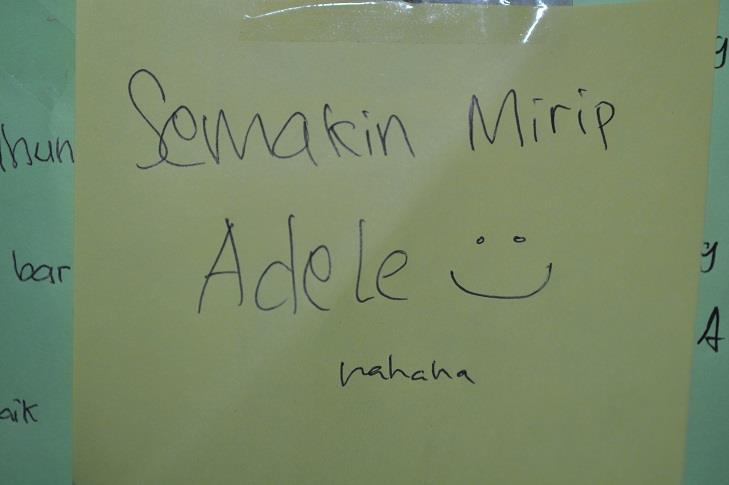 Semakin Mirip
Adele
hahaha
bar
aik
y
y
A